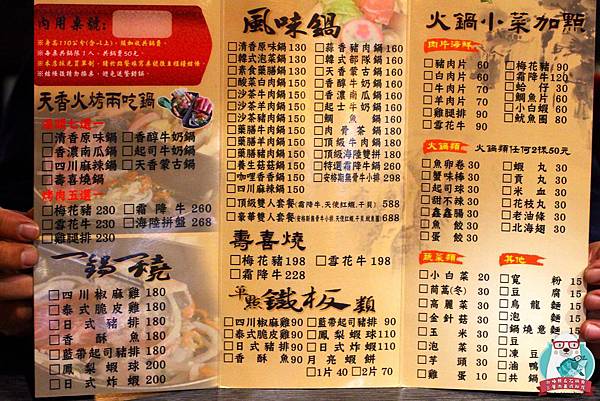 內用桌號:
天香火烤兩吃鍋
湯頭七選一
□清香原味鍋 □香醇牛奶鍋
□香濃南瓜鍋 □起司牛奶鍋
□四川麻辣鍋 □天香蒙古鍋
□壽喜燒鍋
烤肉五選一
□梅花豬 230 □霜降牛 260
□雪花牛 230 □海陸拼盤 268
□雞腿排 230
一鍋一燒
□四川椒麻雞 180
□泰式脆皮雞 180
□日式豬排 180
□香酥魚 180
□藍帶起司豬排 180
□鳳梨蝦球 200
□日式炸蝦 200
風味鍋
□清香原味鍋 130
□韓式泡菜鍋 130
□素食藥膳鍋 130
□酸菜白肉鍋 150
□沙茶牛肉鍋 150
□沙茶羊肉鍋 150
□沙茶豬肉鍋 150
□藥膳牛肉鍋 150
□藥膳羊肉鍋 150
□養生菇菇鍋 150
□咖哩香香鍋 150
□四川麻辣鍋 150
□蒜香豬肉鍋 160
□韓式部隊鍋 160
□天香蒙古鍋 160
□香醇牛奶鍋 160
□香濃南瓜鍋 160
□起士牛奶鍋 160
□鯛魚鍋 160
□肉骨茶鍋 160
□頂級牛肉鍋 200
□頂級海陸雙拼 180
□特選霜降牛鍋 200
□安格斯無骨牛小排 298
□頂級雙人套餐(霜降牛.天使紅蝦.干貝) 588
□豪華雙人套餐(安格斯無骨牛小排.天使紅蝦.干貝.魷魚圈) 688
壽喜燒
□梅花豬 198 □雪花牛 198
□霜降牛 228
單點鐵板類
□四川椒麻雞 90 □藍帶起司豬排 90
□泰式脆皮雞 90 □鳳梨蝦球 110
□日式豬排 90 □日式炸蝦 110
□香酥魚 90 月亮蝦餅
□1片 40 □2片 70
火鍋小菜加點
肉片海鮮
□豬肉片 60 □梅花豬 90
□白肉片 60 □霜降牛 120
□牛肉片 60 □蛤仔 30
□羊肉片 60 □鯛魚片 60
□雞腿排 90 □小白蝦 60
□雪花牛 90 □魷魚圈 80
火鍋類 火鍋類任何2粿50元
□魚卵卷 30 □蝦丸 30
□蟹味棒 30 □貢丸 30
□起司球 30 □米血 30
□甜不辣 30 □花枝丸 30
□鑫鑫腸 30 □老油條 30
□魚餃 30 □北海翅 30
□蛋餃 30
蔬菜類 其他
□小白菜 20 □寬粉 15
□茼萵(冬) 30 □豆腐 15
□高麗菜 30 □烏龍麵 15
□金針菇 30 □泡麵 15
□玉米 30 □鍋燒意麵
□泡菜 30
□芋頭 30 □凍豆
□雞蛋 10